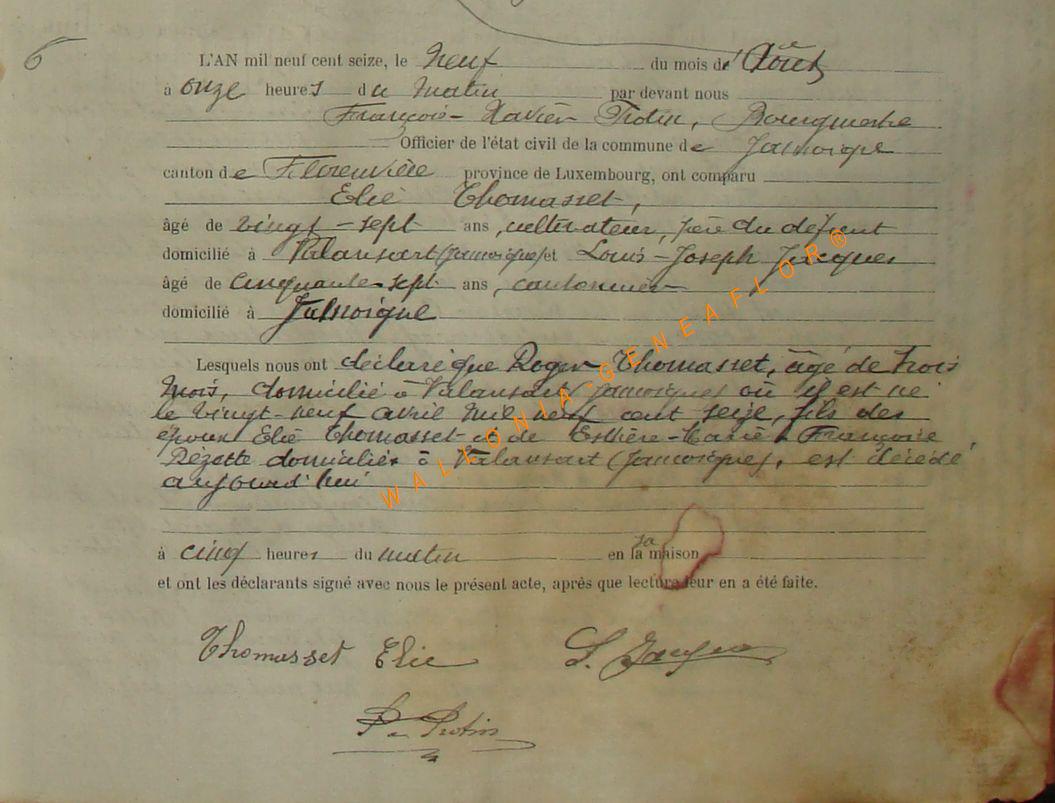 6
L'AN mil neuf cent seize, le neuf du mois d'Août
à onze heures du matin par devant nous
François-Xavier Bourgmestre
Officier de l'état civil de la commune de Jamoigne
canton de Florenville province de Luxembourg, ont comparu
Elie Thomasset,
âgé de vingt-sept ans, cultivateur, père du défunt
domicilié à Valansart (Jamoigne) et Louis-Joseph Jacques
âgé de cinquante-sept ans, cantonnier
domicilié à Jamoigne
Lesquels nous ont déclaré que Roger Thomasset, âgé de trois
mois, domicilié à Valansart (Jamoigne) où il est né
le vingt-neuf avril mil neuf cent seize, fils des
époux Elie Thomasset et de Marie Françoise
domiciliés à Valansart (Jamoigne), est décédé
aujourd'hui
à cinq heures du matin en sa maison
et ont les déclarants signé avec nous le présent acte, après que lecture leur en a été faite.
Thomasset Elie
WALLONIA-GENEAFLOR®